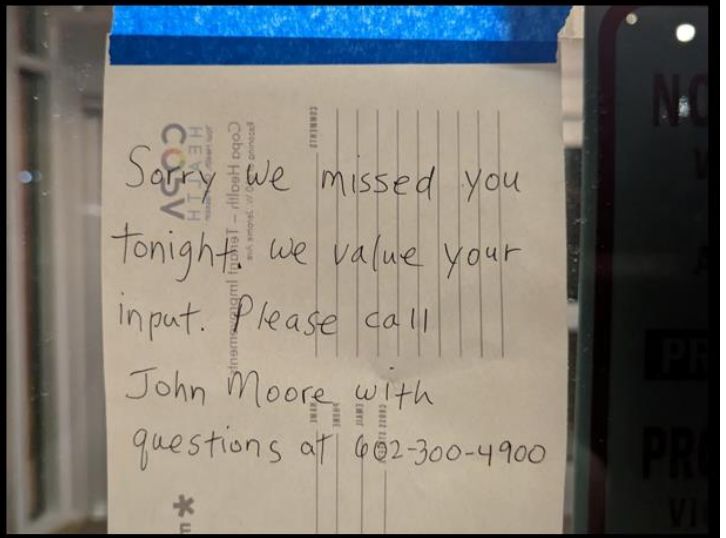 Sorry we missed you
tonight. we value your
input. Please call
John Moore with
questions at 602-300-4900
COMMENTS
HEALTH
Copa Health – Tenant Improvement
NAME
PHONE
EMAIL
NO
PR
PRO
VI